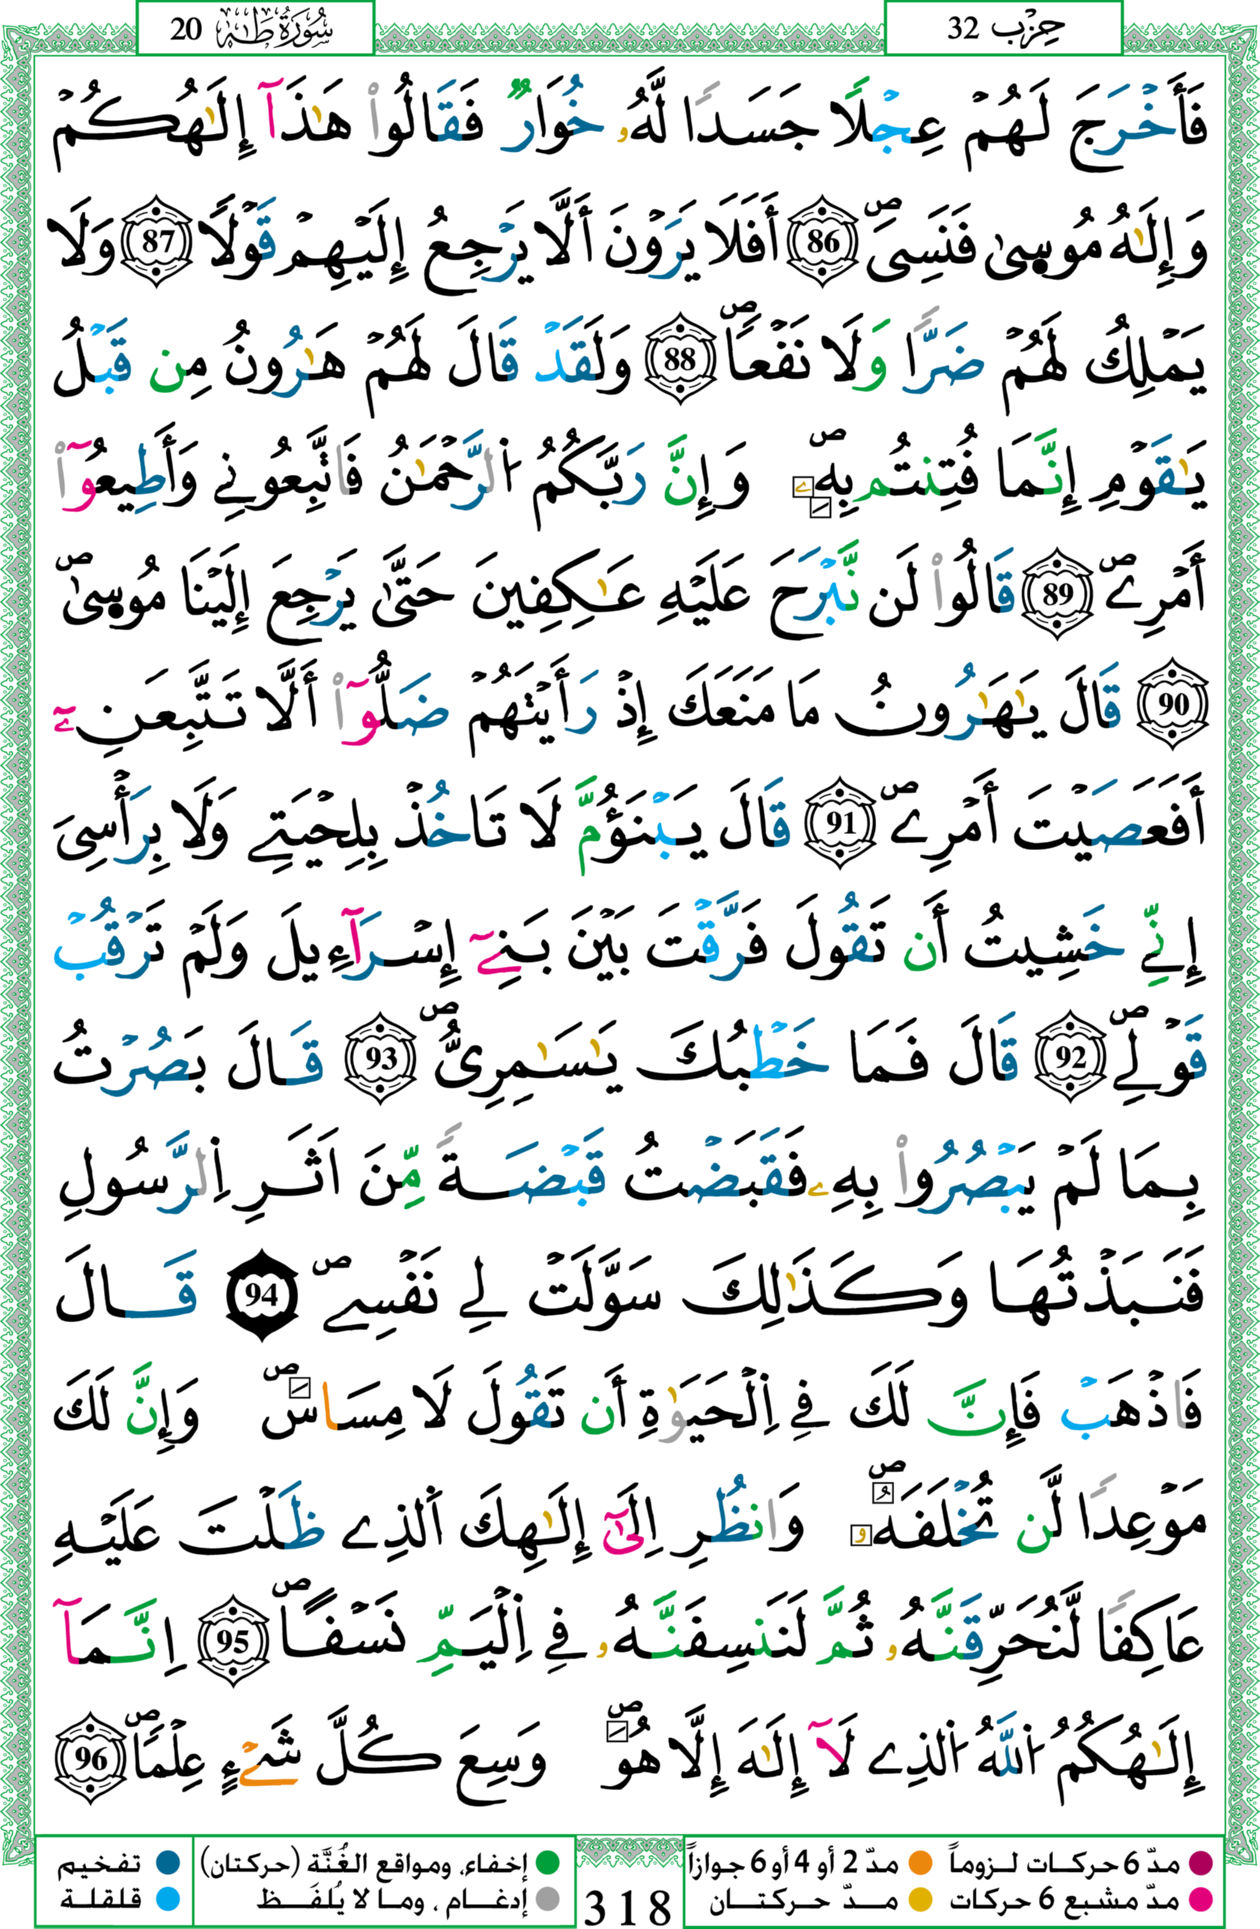 سُورَةُ طَهَ 20
حِزْب 32
فَأَخْرَجَ لَهُمْ عِجْلًا جَسَدًا لَّهُۥ خُوَارٌ فَقَالُوا۟ هَٰذَآ إِلَٰهُكُمْ
وَإِلَٰهُ مُوسِىٰ فَنَسِىَ ۖ 86 أَفَلَا يَرَوْنَ أَلَّا يَرْجِعُ إِلَيْهِمْ قَوْلًا 87 وَلَا
يَمْلِكُ لَهُمْ ضَرًّا وَلَا نَفْعًا ۖ 88 وَلَقَدْ قَالَ لَهُمْ هَٰرُونُ مِن قَبْلُ
يَٰقَوْمِ إِنَّمَا فُتِنتُم بِهِۦ ۖ وَإِنَّ رَبَّكُمُ اُ۬لرَّحْمَٰنُ فَاتَّبِعُونِے وَأَطِيعُوٓا۟
أَمْرِے ۖ 89 قَالُوا۟ لَن نَّبْرَحَ عَلَيْهِ عَٰكِفِينَ حَتَّىٰ يَرْجِعَ إِلَيْنَا مُوسِىٰ ۖ
90 قَالَ يَٰهَٰرُونُ مَا مَنَعَكَ إِذْ رَأَيْتَهُمْ ضَلُّوٓا۟ أَلَّا تَتَّبِعَنِۦٓ
أَفَعَصَيْتَ أَمْرِے ۖ 91 قَالَ يَبْنَؤُمَّ لَا تَاخُذْ بِلِحْيَتِے وَلَا بِرَأْسِىَ
إِنِّے خَشِيتُ أَن تَقُولَ فَرَّقْتَ بَيْنَ بَنِےٓ إِسْرَآءِيلَ وَلَمْ تَرْقُبْ
قَوْلِے ۖ 92 قَالَ فَمَا خَطْبُكَ يَٰسَٰمِرِىُّ ۖ 93 قَالَ بَصُرْتُ
بِمَا لَمْ يَبْصُرُوا۟ بِهِۦ فَقَبَضْتُ قَبْضَةً مِّنَ اَثَرِ اِ۬لرَّسُولِ
فَنَبَذْتُهَا وَكَذَٰلِكَ سَوَّلَتْ لِے نَفْسِے ۖ 94 قَالَ
فَاذْهَبْ فَإِنَّ لَكَ فِے اِ۬لْحَيَوٰةِ أَن تَقُولَ لَا مِسَاسَ ۖ وَإِنَّ لَكَ
مَوْعِدًا لَّن تُخْلَفَهُۥ ۖ وَانظُرِ اِلَىٰٓ إِلَٰهِكَ اَ۬لذِے ظَلْتَ عَلَيْهِ
عَاكِفًا لَّنُحَرِّقَنَّهُۥ ثُمَّ لَنَنسِفَنَّهُۥ فِے اِ۬لْيَمِّ نَسْفًا ۖ 95 اِنَّمَآ
إِلَٰهُكُمُ اُ۬للَّهُ اُ۬لذِے لَآ إِلَٰهَ إِلَّا هُوَ ۖ وَسِعَ كُلَّ شَےْءٍ عِلْمًا ۖ 96
مدّ 6 حركات لـزوماً
مدّ 2 أو 4 أو 6 جوازاً
إخفاء، ومواقع الغُنَّة (حركتان)
تفخيم
مدّ مشبع 6 حركات
مدّ حركتـان
318
إدغـام ، ومـا لا يُلفَـظ
قلقلة